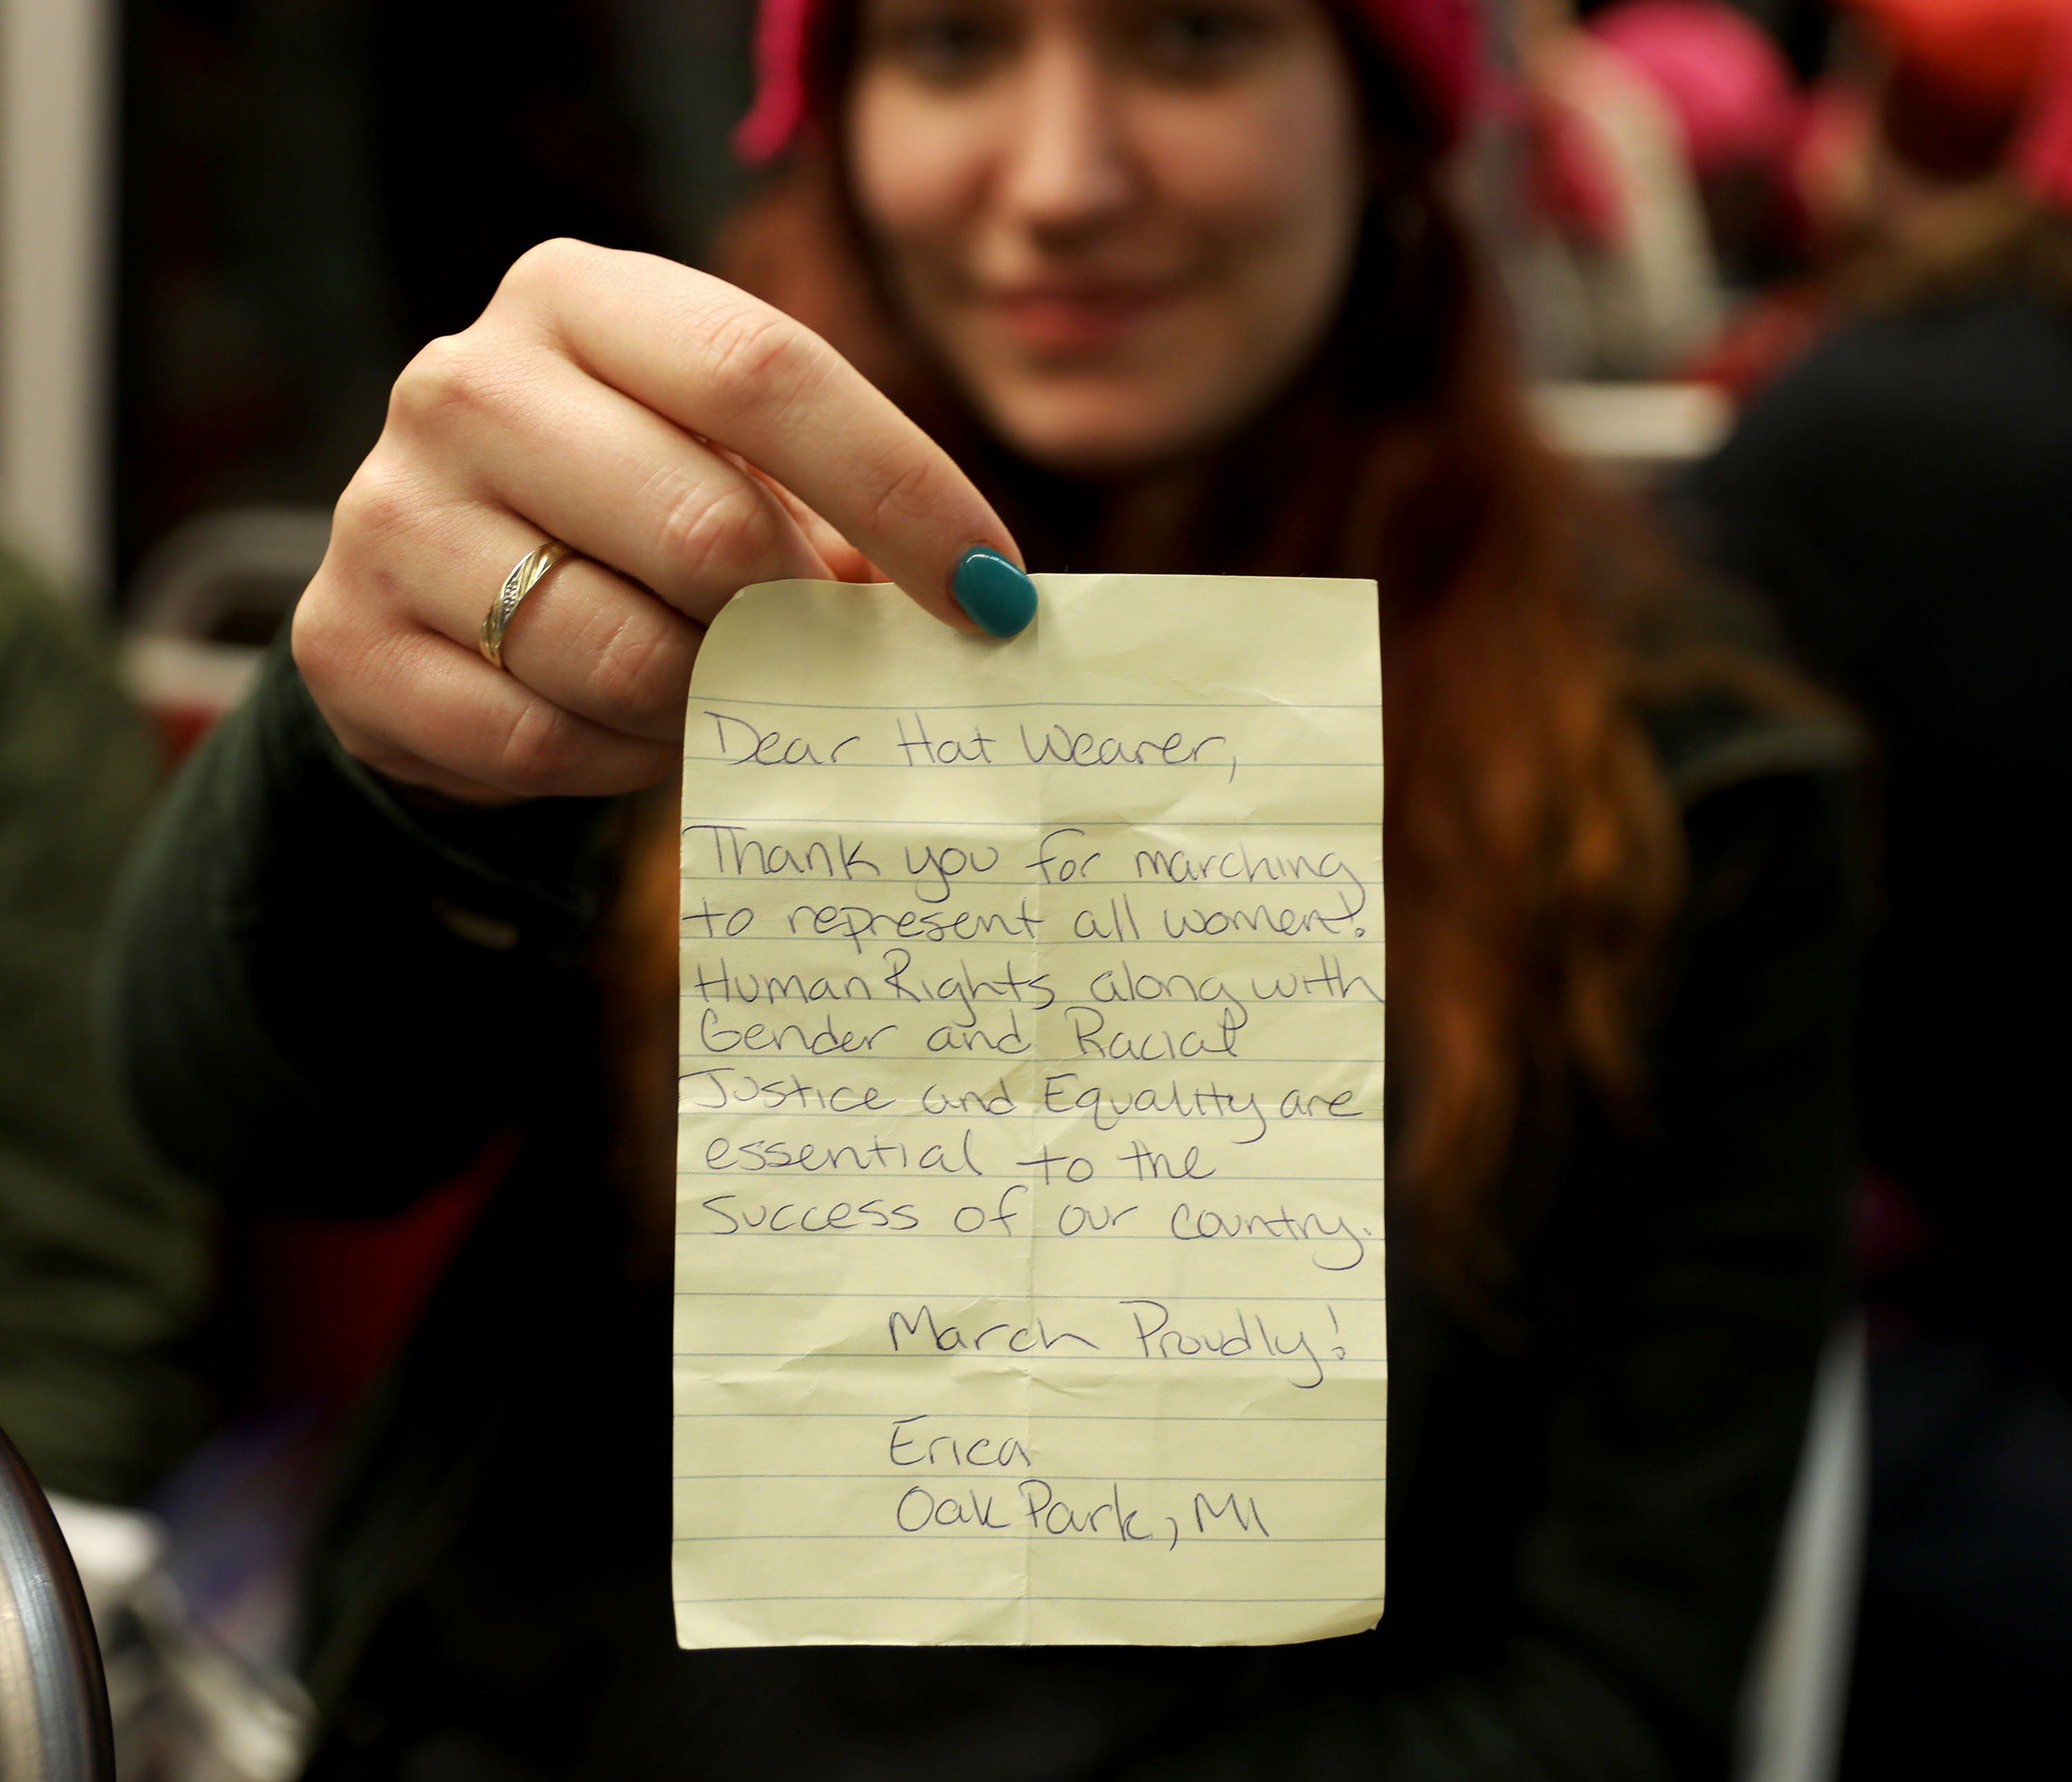 Dear Hat Wearer,
Thank you for marching
to represent all women!
Human Rights along with
Gender and Racial
Justice and Equality are
essential to the
success of our country.
March Proudly!
Erica
Oak Park, MI